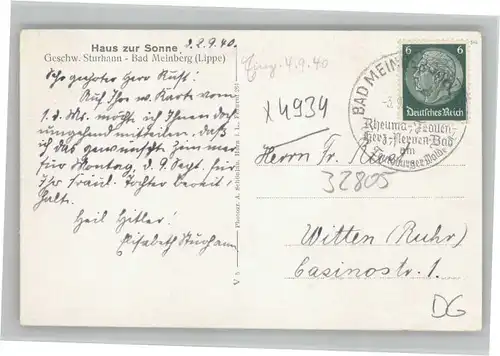 d. 2.9.40.
Haus zur Sonne
Geschw. Sturhann - Bad Meinberg (Lippe)
Sehr geehrter Herr Rust!
Auf Ihre w. Karte vom
1. d. Ms. möchte ich Ihnen doch
umgehend mitteilen, daß
ich das gewünscht. Zimmer
für Montag, d. 9. Sept. für
Ihr Fräul. Tochter bereit
halte.
Heil Hitler!
Elisabeth Sturhann
4.9.40
x 4934
BAD MEIN
6 6
Deutsches Reich
Rheuma-, Frauen-
Herz-, Nerven-Bad
am
Teutoburger Walde
Herrn Fr.
32805
Witten (Ruhr)
Casinostr. 1.
DG